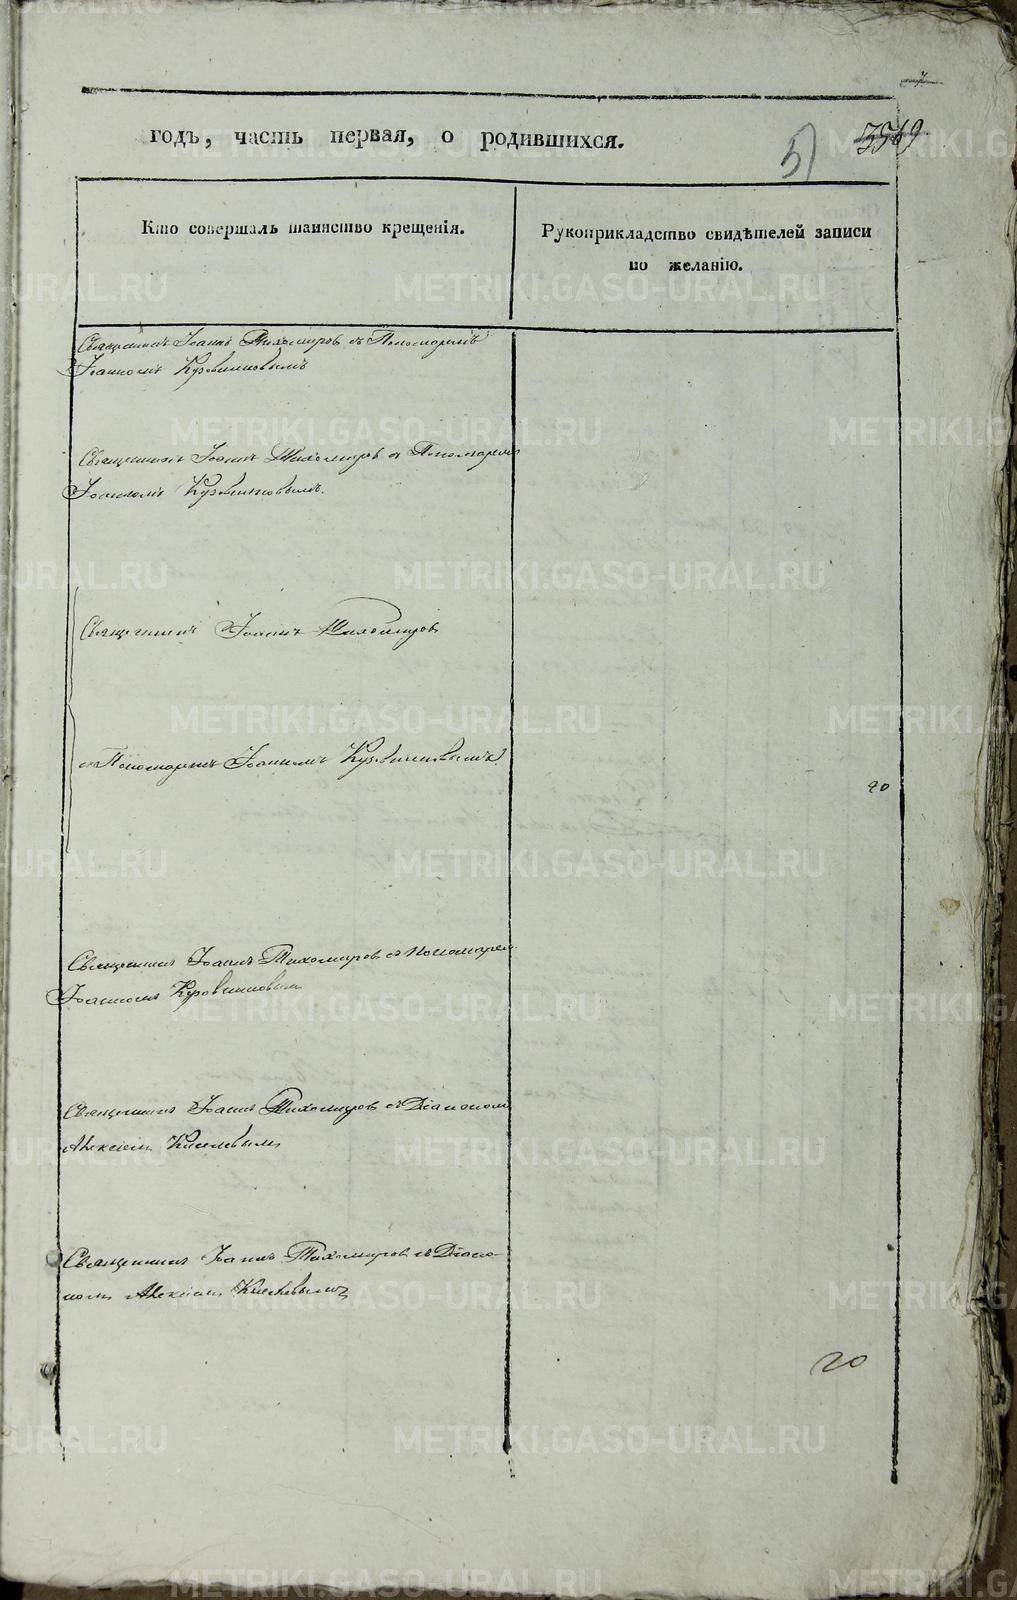 годъ, часть первая, о родившихся.
5
Кто совершалъ таинство крещенія.
Рукоприкладство свидѣтелей записи
по желанію.
Священникъ Іоаннъ Тихомиров съ Пономаремъ
Іоанномъ Кузовниковымъ
Священникъ Іоаннъ Тихомиров съ Пономаремъ
Іоанномъ Кузовниковымъ.
Священникъ Іоаннъ Тихомиров
съ Пономаремъ Іоанномъ Кузовниковымъ
20
Священникъ Іоаннъ Тихомиров съ пономарем
Іоанномъ Кузовниковым
Священникъ Іоаннъ Тихомиров съ Діаконом
Алексіем Киселевым
Священникъ Іоаннъ Тихомиров съ Діако-
ном Алексіем Киселевымъ
20
METRIKI.GASO-URAL.RU